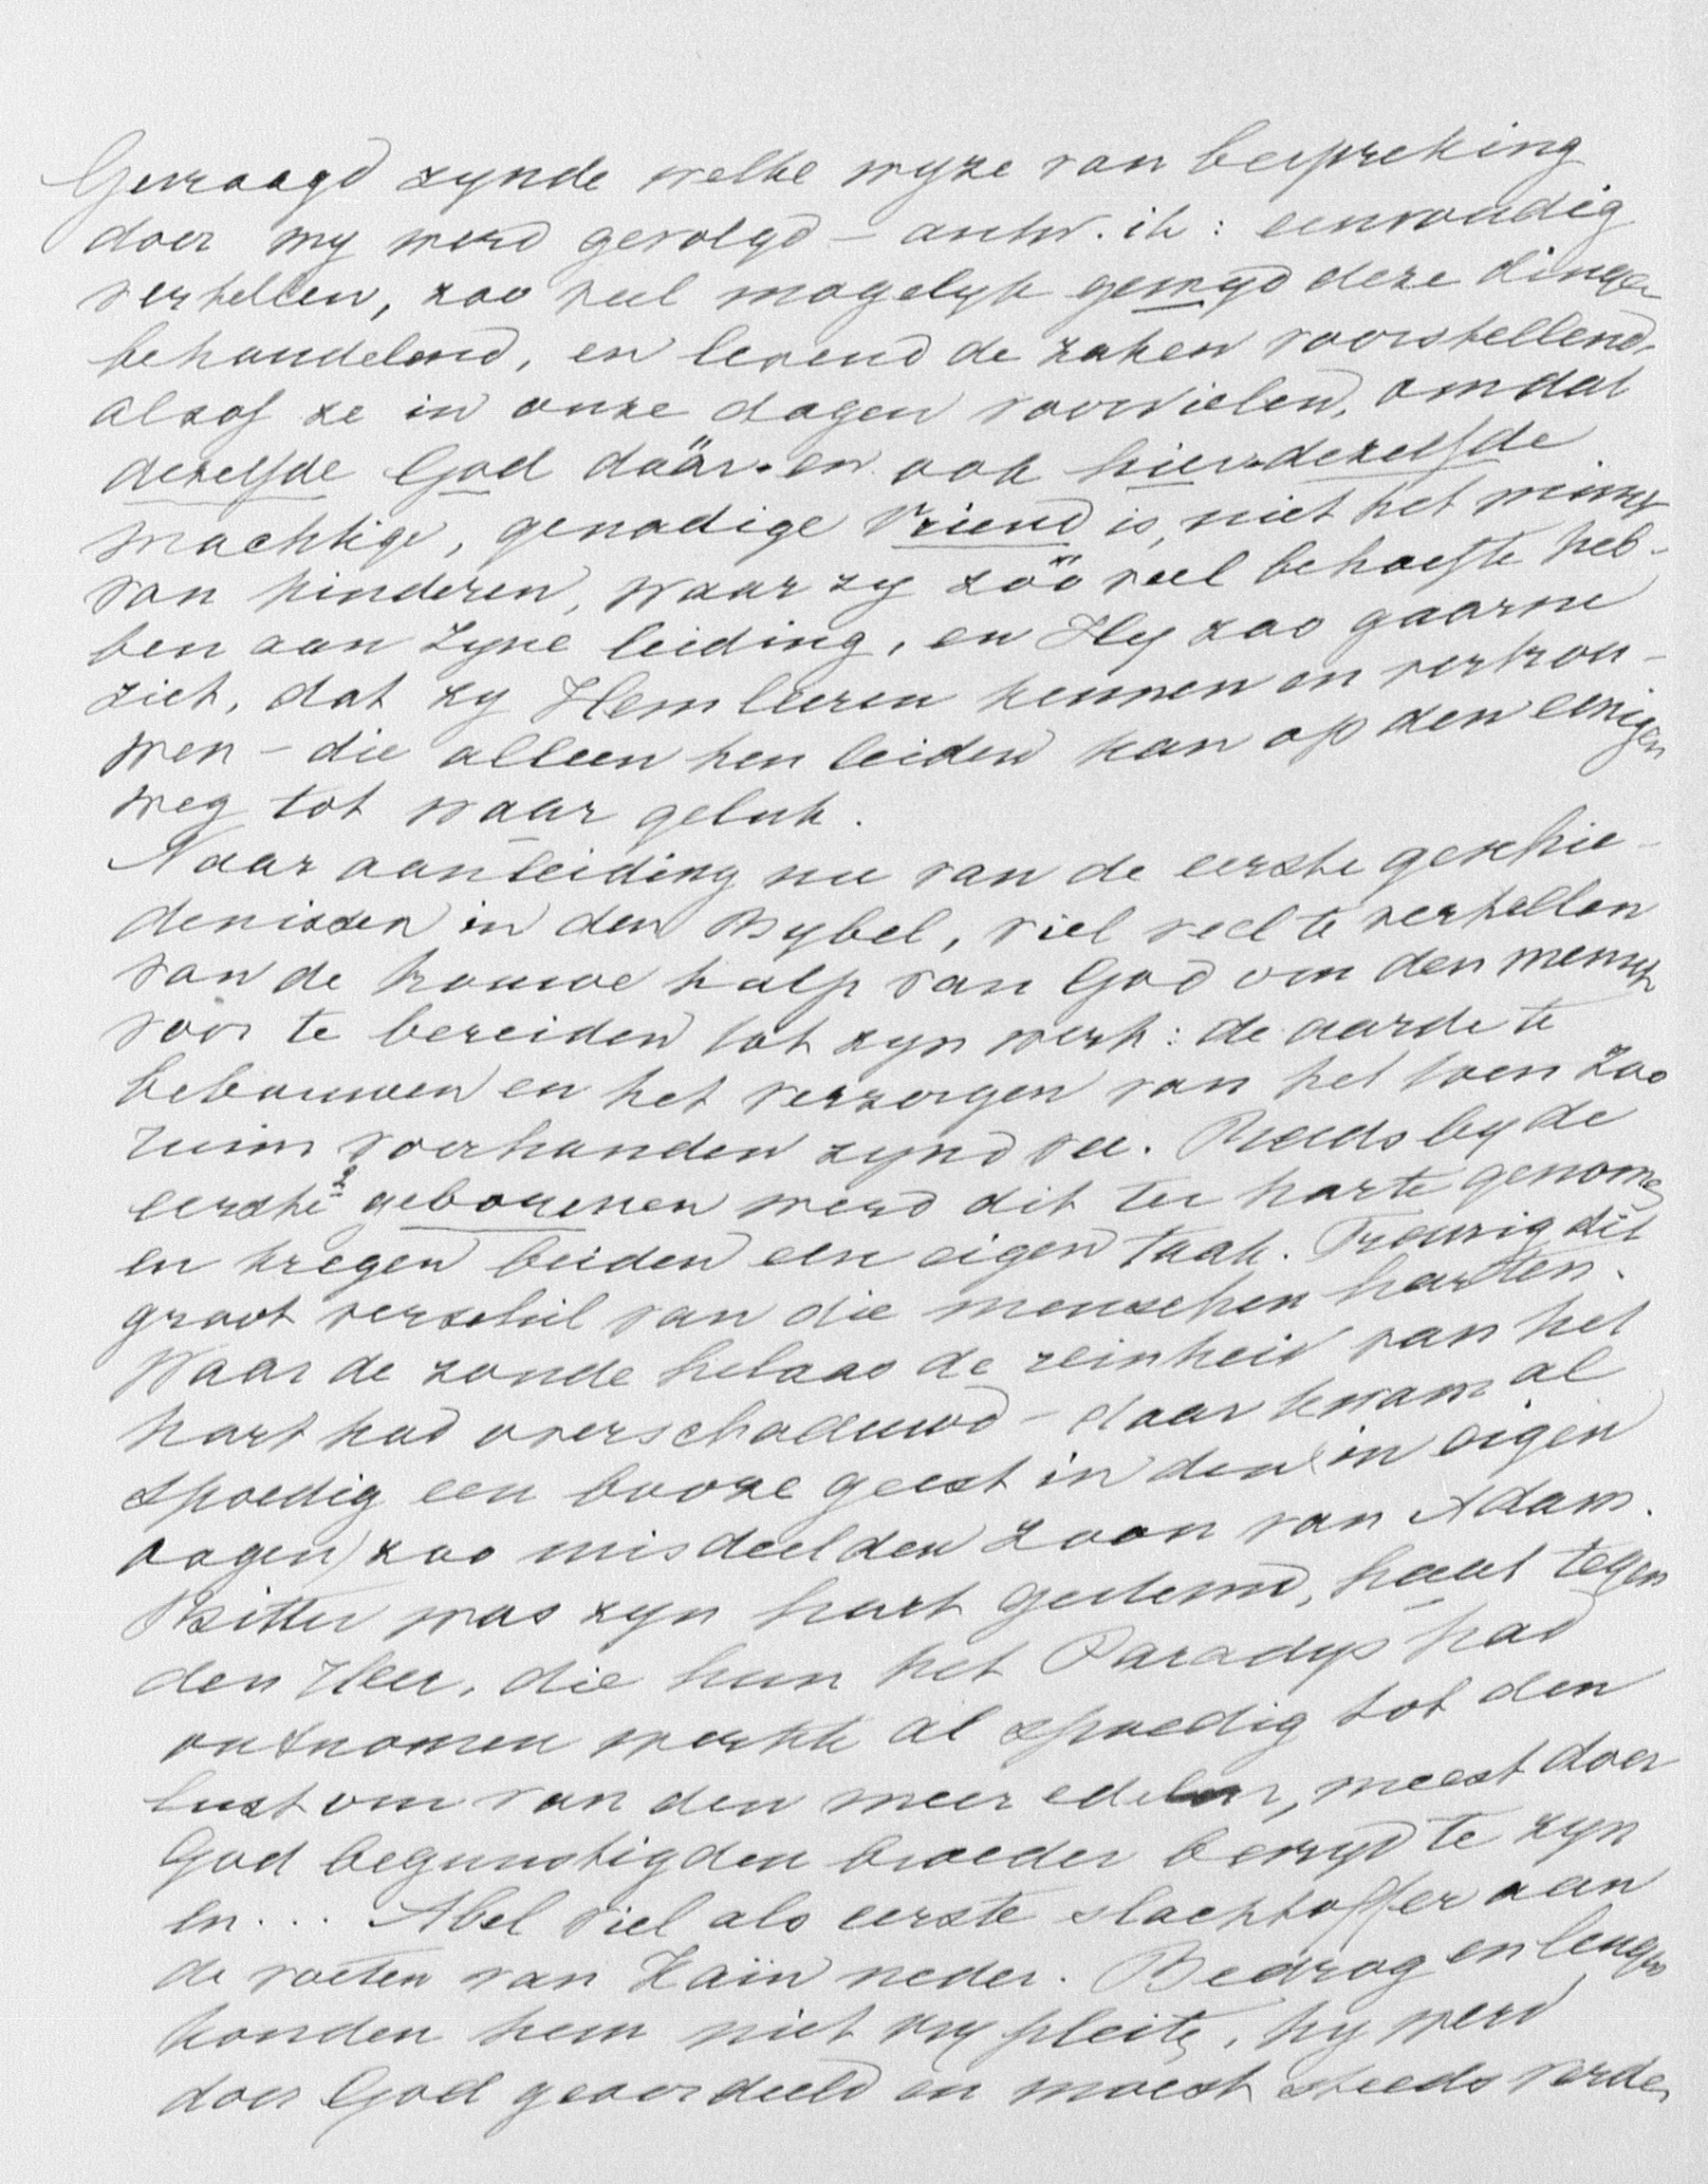 Gevraagd zynde welke wyze van bespreking
door my werd gevolgd – antw. ik: eenvoudig
vertellen, zoo veel mogelyk gewyd deze dingen
behandelend, en levend de zaken voorstellend,
alsof ze in onze dagen voorvielen, omdat
dezelfde God däär en ook hier dezelfde
machtige, genadige Vriend is, niet het minst
van kinderen, waar zy zöö veel behoefte heb-
ben aan Zyne leiding, en Hy zoo gaarne
ziet, dat zy Hem leeren kennen en vertrou-
wen – die alleen hen leiden kan op den eenigen
weg tot waar geluk.
Naar aanleiding nu van de eerste geschie-
denissen in den Bybel, viel veel te vertellen
van de trouwe hulp van God om den mensch
voor te bereiden tot zyn werk: de aarde te
bebouwen en het verzorgen van het toen zoo
ruim voorhanden zynd vee. Reeds by de
eerste 2 geborenen werd dit ter harte genomen
en kregen beiden een eigen taak. Treurig dit
groot verschil van die menschen harten.
Waar de zonde helaas de reinheid van het
hart had overschaduwd – daar kwam al
spoedig een booze geest in den (in eigen
oogen) zoo misdeelden zoon van Adam.
Bitter was zyn hart gestemd, haat tegen
den Heer, die hun het Paradys had
ontnomen werkte al spoedig tot den
lust om van den meer edelen, meest door
God begunstigden broeder bevryd te zyn
en... Abel viel als eerste slachtoffer aan
de voeten van Kaïn neder. Bedrog en leugen
konden hem niet vry pleiten, hy werd
door God geoordeeld en moest steeds verder